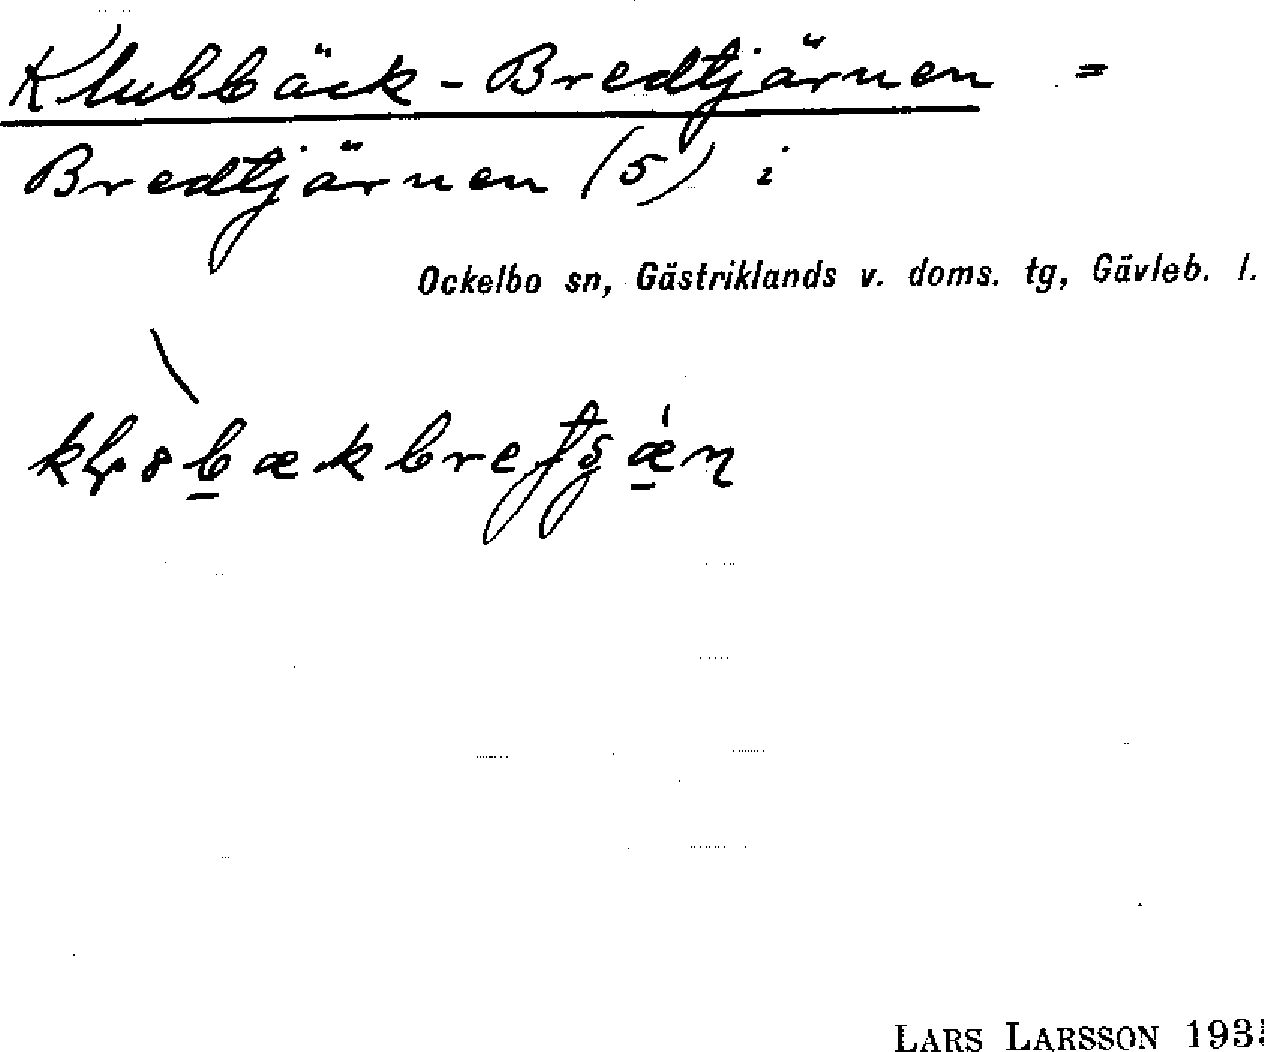 Klubbäck-Bredtjärnen =
Bredtjärnen (5) i
Ockelbo sn, Gästriklands v. doms. tg, Gävleb. l.
LARS LARSSON 1935